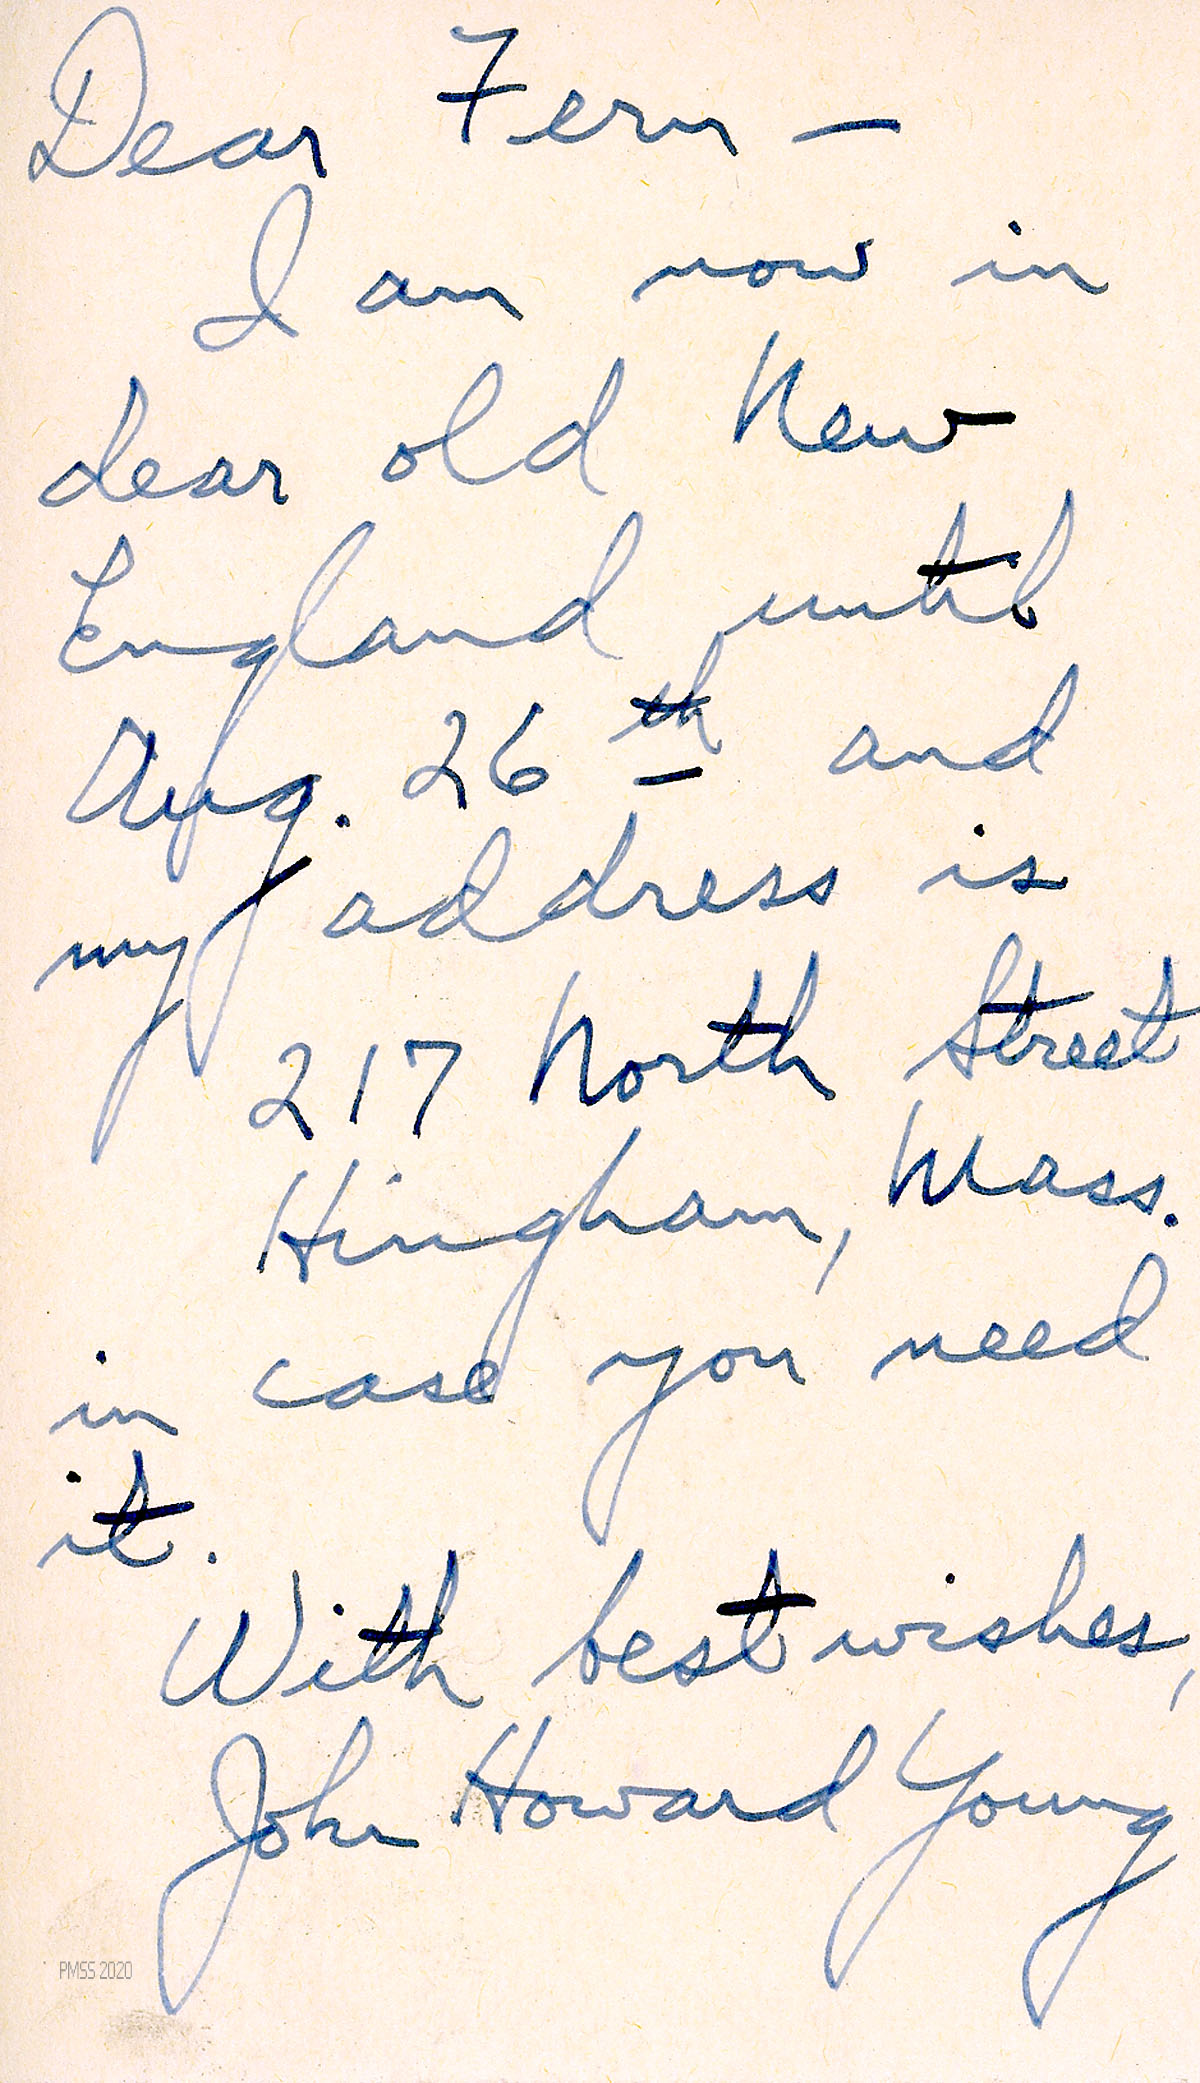 Dear Fern —
I am now in
dear old New
England until
Aug. 26th and
my address is
217 North Street
Hingham, Mass.
in case you need
it.
With best wishes,
John Howard Young
PMSS 2020